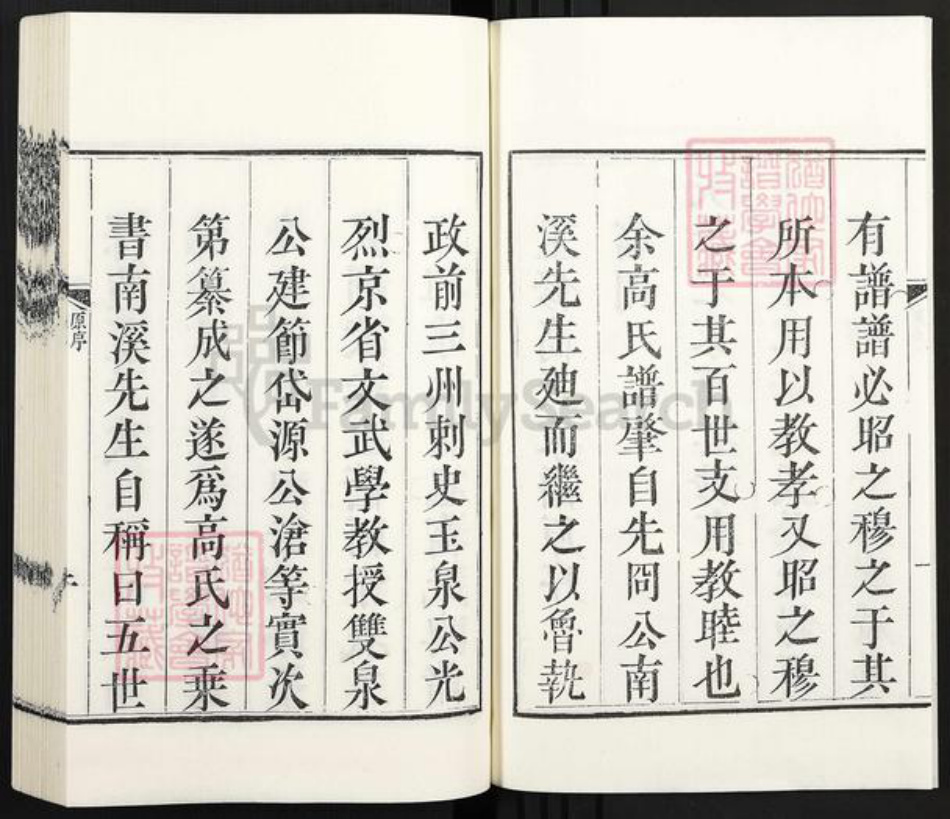 有譜譜必昭之穆之于其
所本用以教孝又昭之穆
之于其百世支用教睦也
余高氏譜肇自先冏公南
溪先生廸而繼之以魯執
政前三州刺史玉泉公光
烈京省文武學教授雙泉
公建節岱源公滄等實次
第纂成之遂爲高氏之乗
書南溪先生自稱曰五世
原序
一
FamilySearch